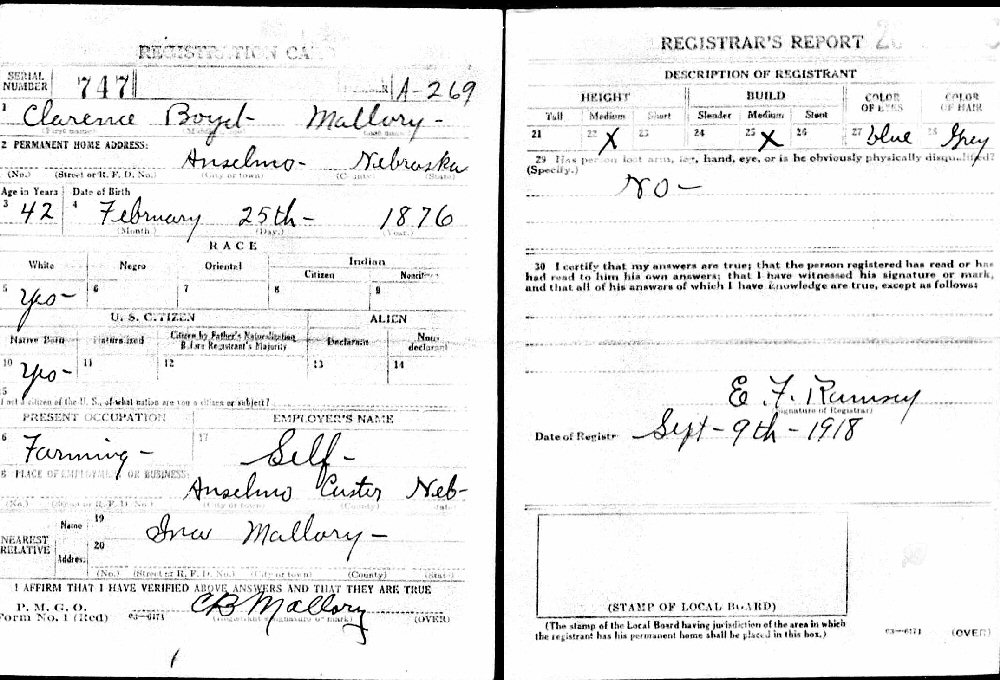 REGISTRATION CARD
SERIAL NUMBER 747 A-269
1 Clarence Boyd- Mallory-
2 PERMANENT HOME ADDRESS:
Anselmo- Nebraska
(No.) (Street or R. F. D. No.) (City or town) (County) (State)
Age in Years Date of Birth
3 42 4 February 25th- 1876
(Month.) (Day.) (Year.)
RACE
White Negro Oriental Indian
Citizen Noncitizen
5 Yes- 6 7 8 9
U. S. CITIZEN ALIEN
Native Born Naturalized Citizen by Father's Naturalization Before Registrant's Majority Declarant Non-declarant
10 Yes- 11 12 13 14
15
If not a citizen of the U. S., of what nation are you a citizen or subject?
PRESENT OCCUPATION EMPLOYER'S NAME
6 Farming- 17 Self-
8 PLACE OF EMPLOYMENT OR BUSINESS:
Anselmo Custer Neb-
(No.) (Street or R. F. D. No.) (City or town) (County) (State)
NEAREST RELATIVE Name 19 Ina Mallory-
Address 20
(No.) (Street or R. F. D. No.) (City or town) (County) (State)
I AFFIRM THAT I HAVE VERIFIED ABOVE ANSWERS AND THAT THEY ARE TRUE
P. M. G. O.
Form No. 1 (Red) 03-6171 CB Mallory (OVER)
(Registrant's signature or mark)
REGISTRAR'S REPORT
DESCRIPTION OF REGISTRANT
HEIGHT BUILD COLOR OF EYES COLOR OF HAIR
Tall Medium Short Slender Medium Stout
21 22 X 23 24 25 X 26 27 blue 28 Grey
29 Has person lost arm, leg, hand, eye, or is he obviously physically disqualified?
(Specify.)
No-
30 I certify that my answers are true; that the person registered has read or has
had read to him his own answers; that I have witnessed his signature or mark,
and that all of his answers of which I have knowledge are true, except as follows:
E. F. Ramsey
(Signature of Registrar)
Date of Registr Sept-9th-1918
(STAMP OF LOCAL BOARD)
(The stamp of the Local Board having jurisdiction of the area in which
the registrant has his permanent home shall be placed in this box.)
03-6171 (OVER)